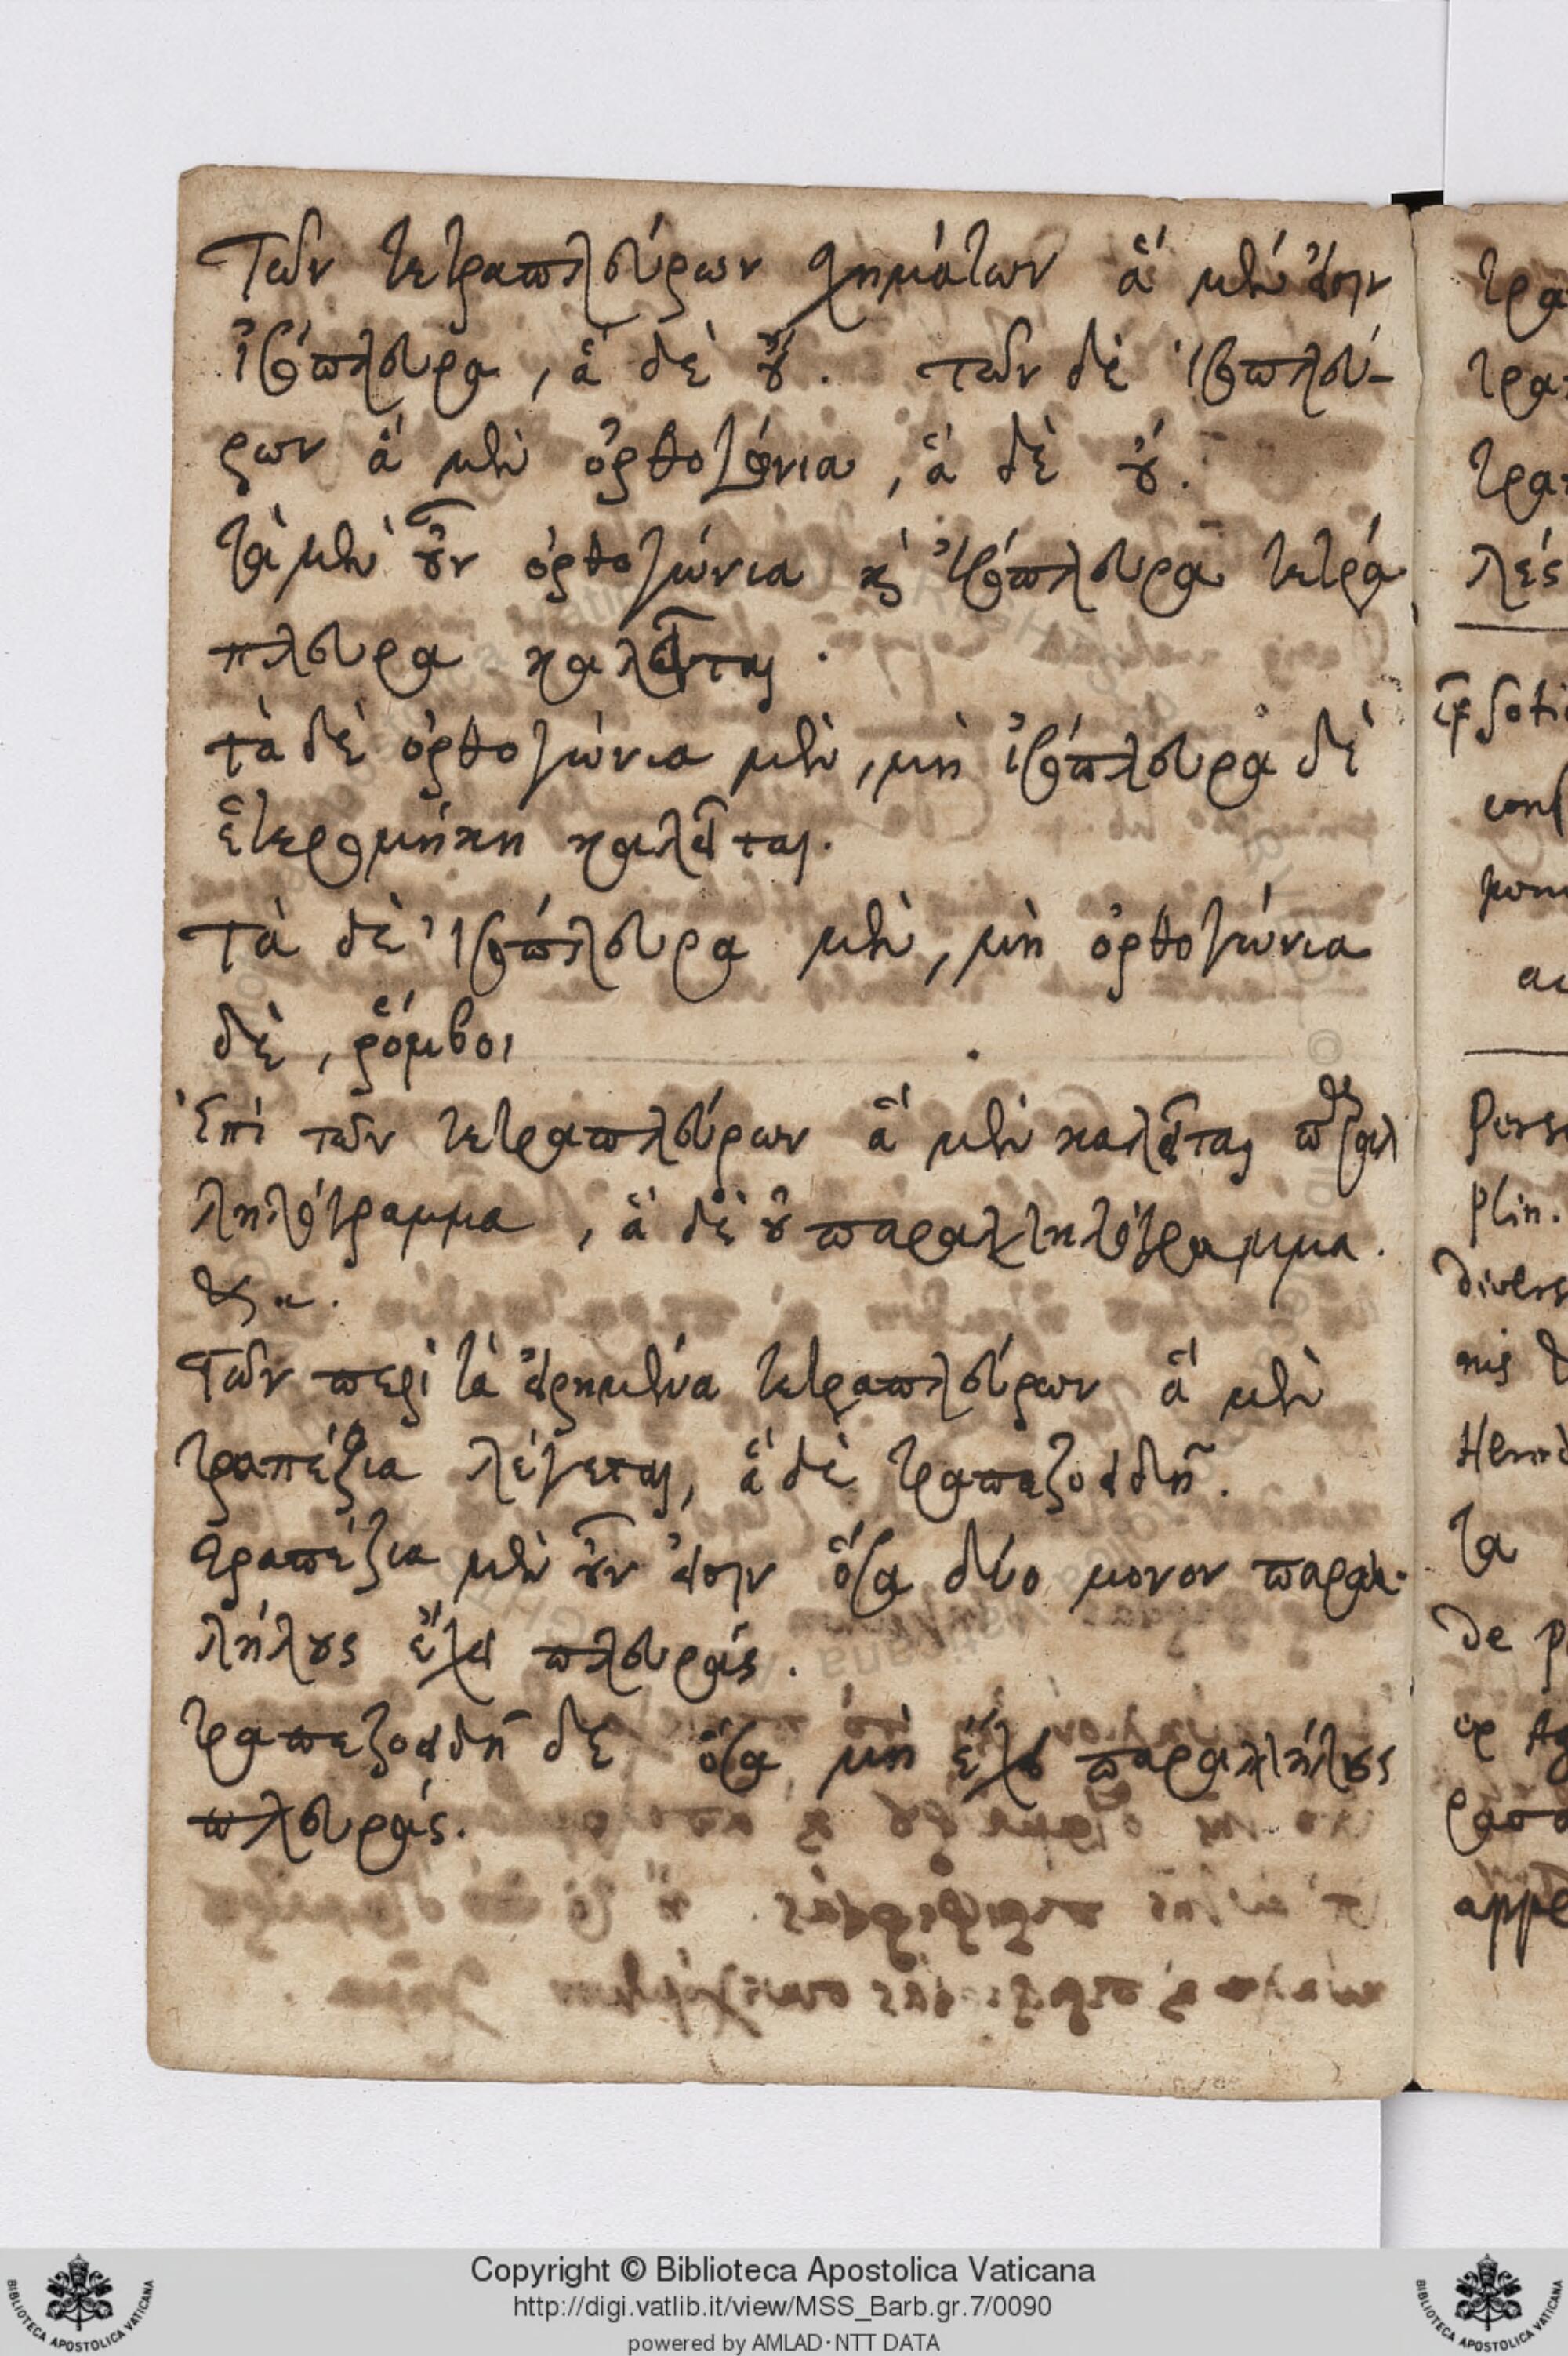 Τῶν τετραπλεύρων σχημάτων ἅ μέν εἰσιν
ἰσόπλευρα, ἅ δὲ οὔ. τῶν δὲ ἰσοπλεύ-
ρων ἅ μὲν ὀρθογώνια, ἅ δὲ οὔ.
τὰ μὲν οὖν ὀρθογώνια καὶ ἰσόπλευρα τετρά
πλευρα καλεῖται.
τὰ δὲ ὀρθογώνια μὲν, μὴ ἰσόπλευρα δὲ
ἑτερομήκη καλεῖται.
τὰ δὲ ἰσόπλευρα μὲν, μὴ ὀρθογώνια
δὲ, ῥόμβοι
Ἐπὶ τῶν τετραπλεύρων ἅ μὲν καλεῖται παραλ
ληλόγραμμα, ἅ δὲ οὐ παραλληλόγραμμα.
Τῶν περὶ τὰ εἰρημένα τετραπλεύρων ἅ μὲν
τραπέζια λέγεται, ἅ δὲ τραπεζοειδῆ.
τραπέζια μὲν οὖν εἰσιν ὅσα δύο μονον παραλ-
λήλους ἔχει πλευράς.
τραπεζοειδῆ δὲ ὅσα μὴ ἔχει παραλλήλους
πλευράς.
τρα
τρα
τρα
λές
conf
Perse
Plin.
divers
nis
τα
De p
appe
Copyright © Biblioteca Apostolica Vaticana
http://digi.vatlib.it/view/MSS_Barb.gr.7/0090
powered by AMLAD·NTT DATA
BIBLIOTECA APOSTOLICA VATICANA
BIBLIOTECA APOSTOLICA VATICANA